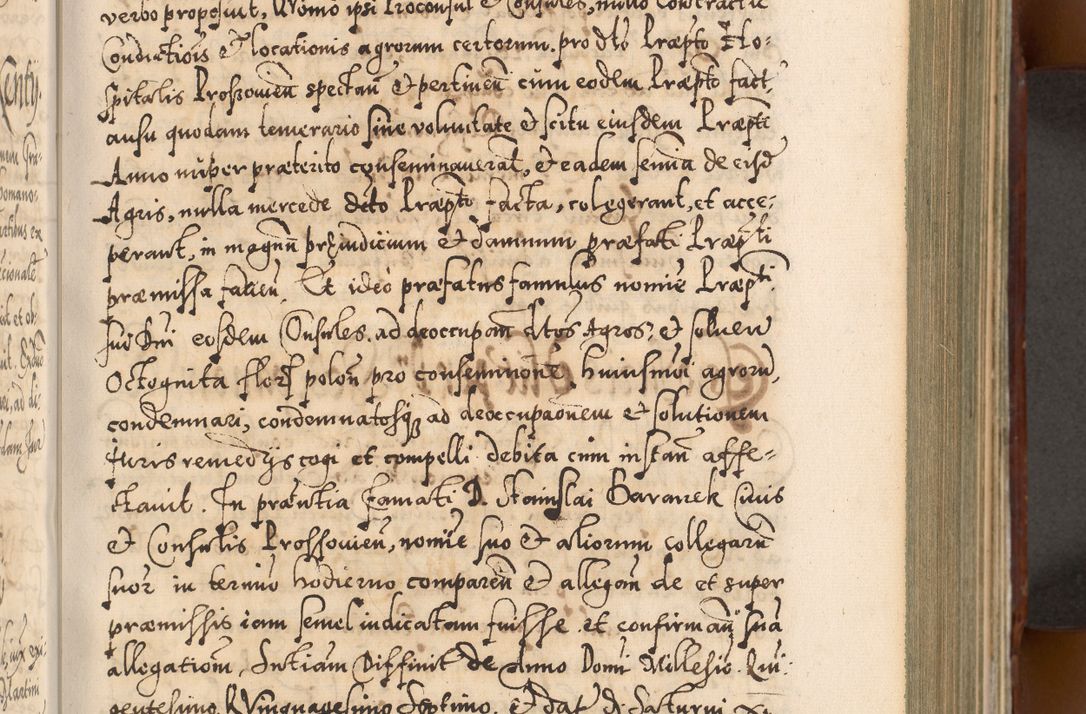 verbo proposuit, Quomo ipsi Proconsul et Consules, nullo Contractu
Conductiois et locationis agrorum certorum pro dto Præpto Ho-
spitalis Proszovien spectan et pertinen cum eodem Præpto fact
ausu quodam temerario sine voluntate et scitu eiusdem Præpti
Anno nuper præterito conseminauerat, et eadem semia de eisd
Agris, nulla mercede dicto Præpto facta, colegerant, et acce-
perant, in magnu præiudicium et damnum præfati Præpti
præmissa facien. Et ideo præfatus famulus nomie Præpti
sui Dni eosdem Consules, ad deoccupan dtos Agros, et soluen
Octoginta flor polon pro conseminone huiusmoi agroru,
condemnari, condemnatosq ad deoccupaonem et solutionem
Iuris remedys cogi et compelli debita cum instan affe-
ctauit. In præntia Famati D. Stanislai Baranek Ciuis
et Consulis Prossouien, nomie suo et aliorum collegaru
suor in termio hodierno comparen et allegan de et super
præmissis iam semel iudicatam fuisse et confirman sua
allegationm, Sntiam Diffinit de Anno Domi Millesio Qui-
gentesimo Quinquagesimo Septimo, et dat d. Saturni